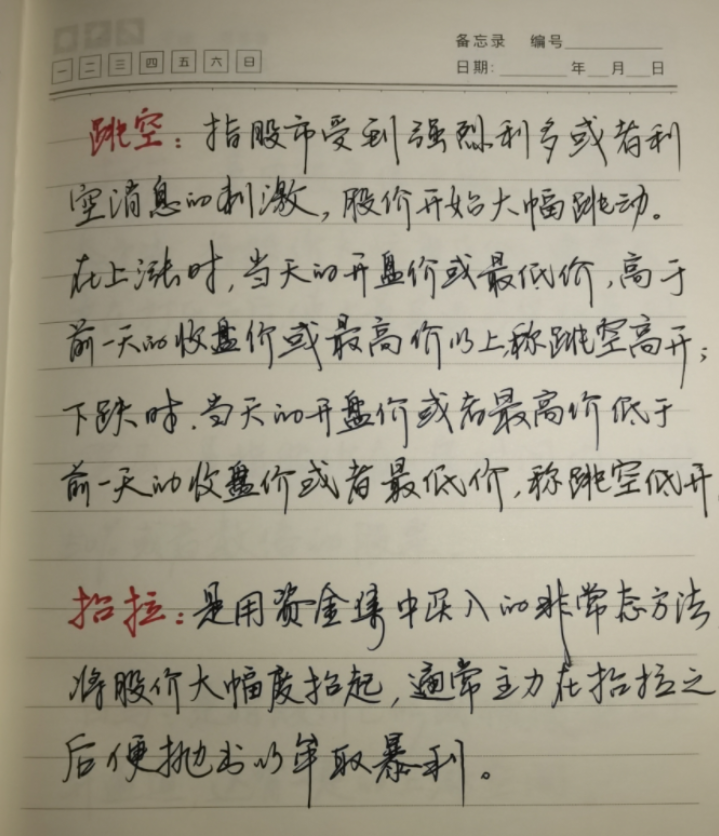 备忘录 编号
一 二 三 四 五 六 日
日期: 年 月 日
跳空：指股市受到强烈利多或者利
空消息的刺激，股价开始大幅跳动。
在上涨时，当天的开盘价或最低价，高于
前一天的收盘价或最高价以上，称跳空高开；
下跌时，当天的开盘价或者最高价低于
前一天的收盘价或者最低价，称跳空低开
抬拉：是用资金集中买入的非常态方法
将股价大幅度抬起，通常主力在抬拉之
后便抛出以牟取暴利。